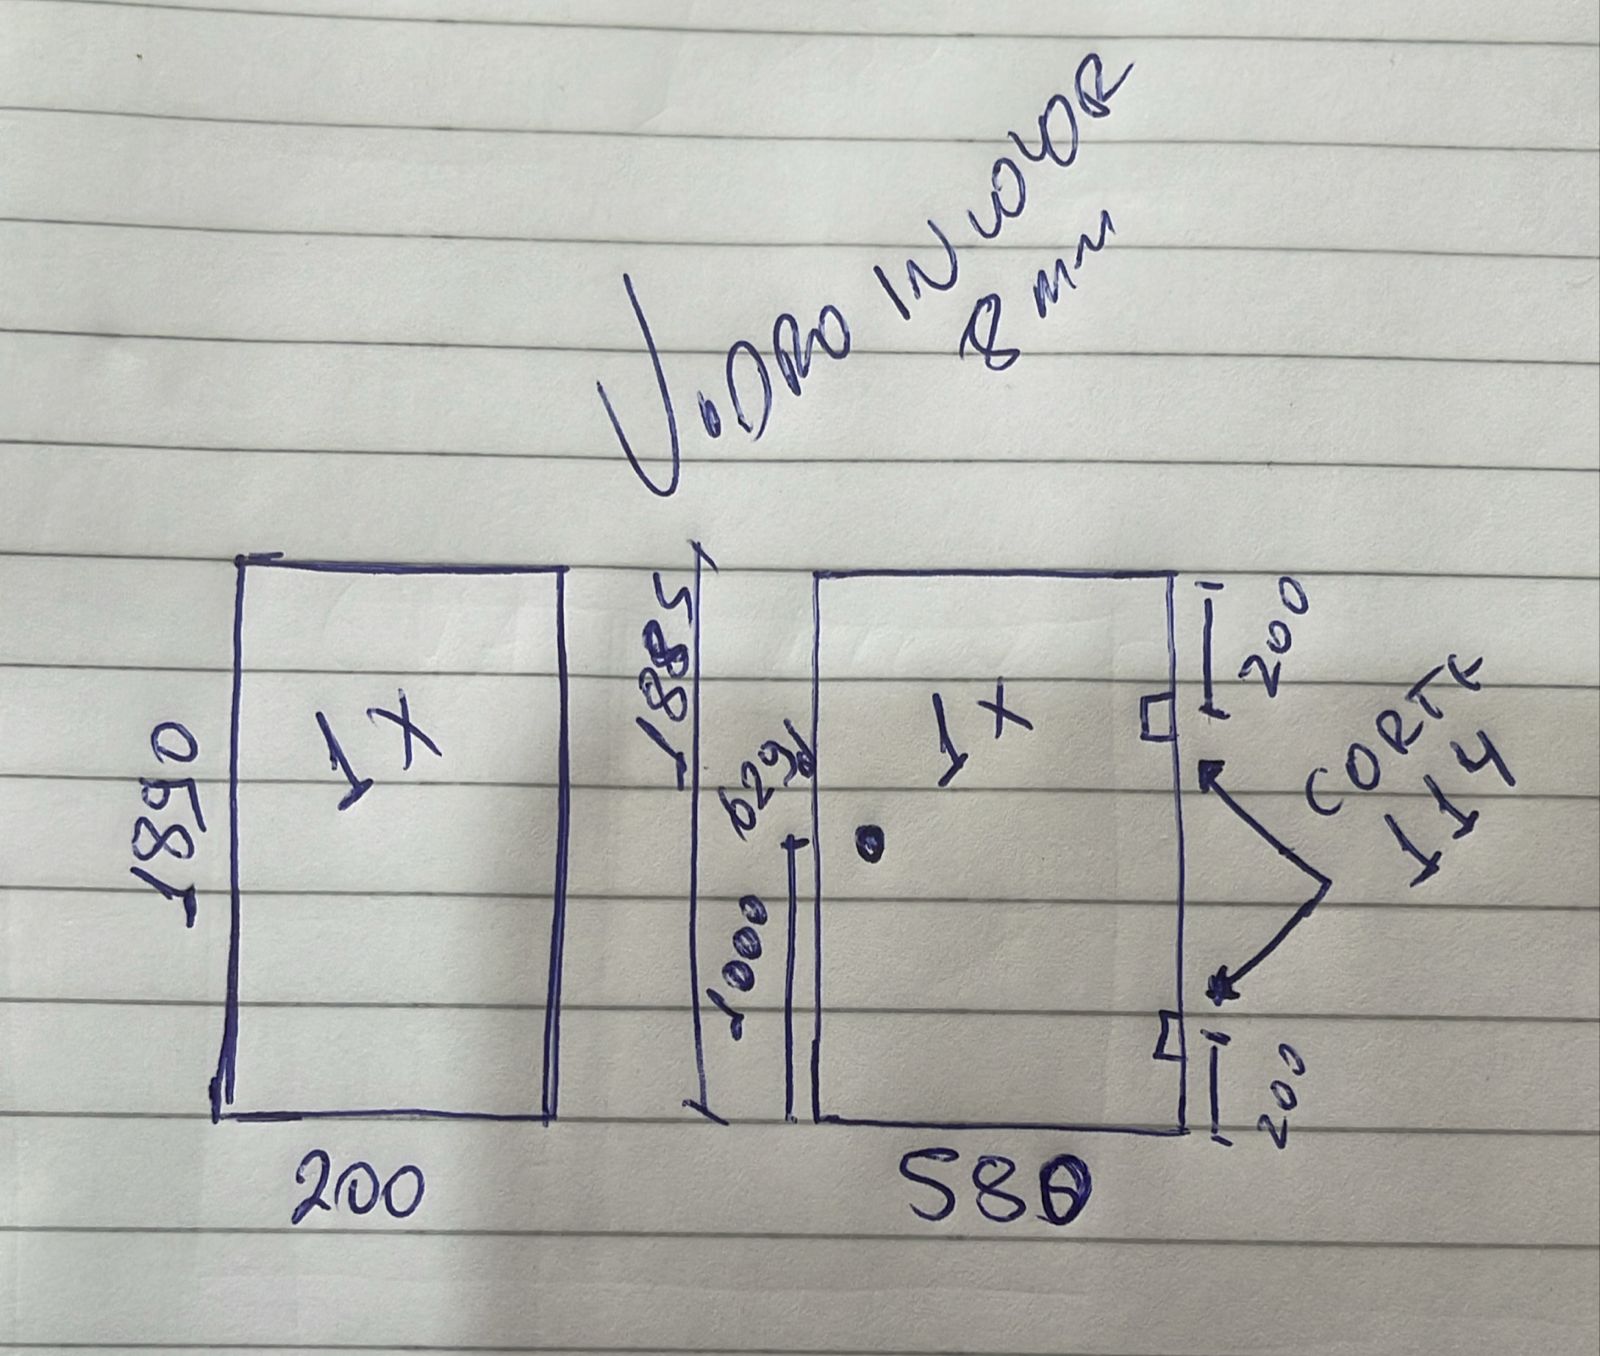 VIDRO INCOLOR
8 mm
1890
1X
200
1885
1000
1X
580
200
CORTE
114
200